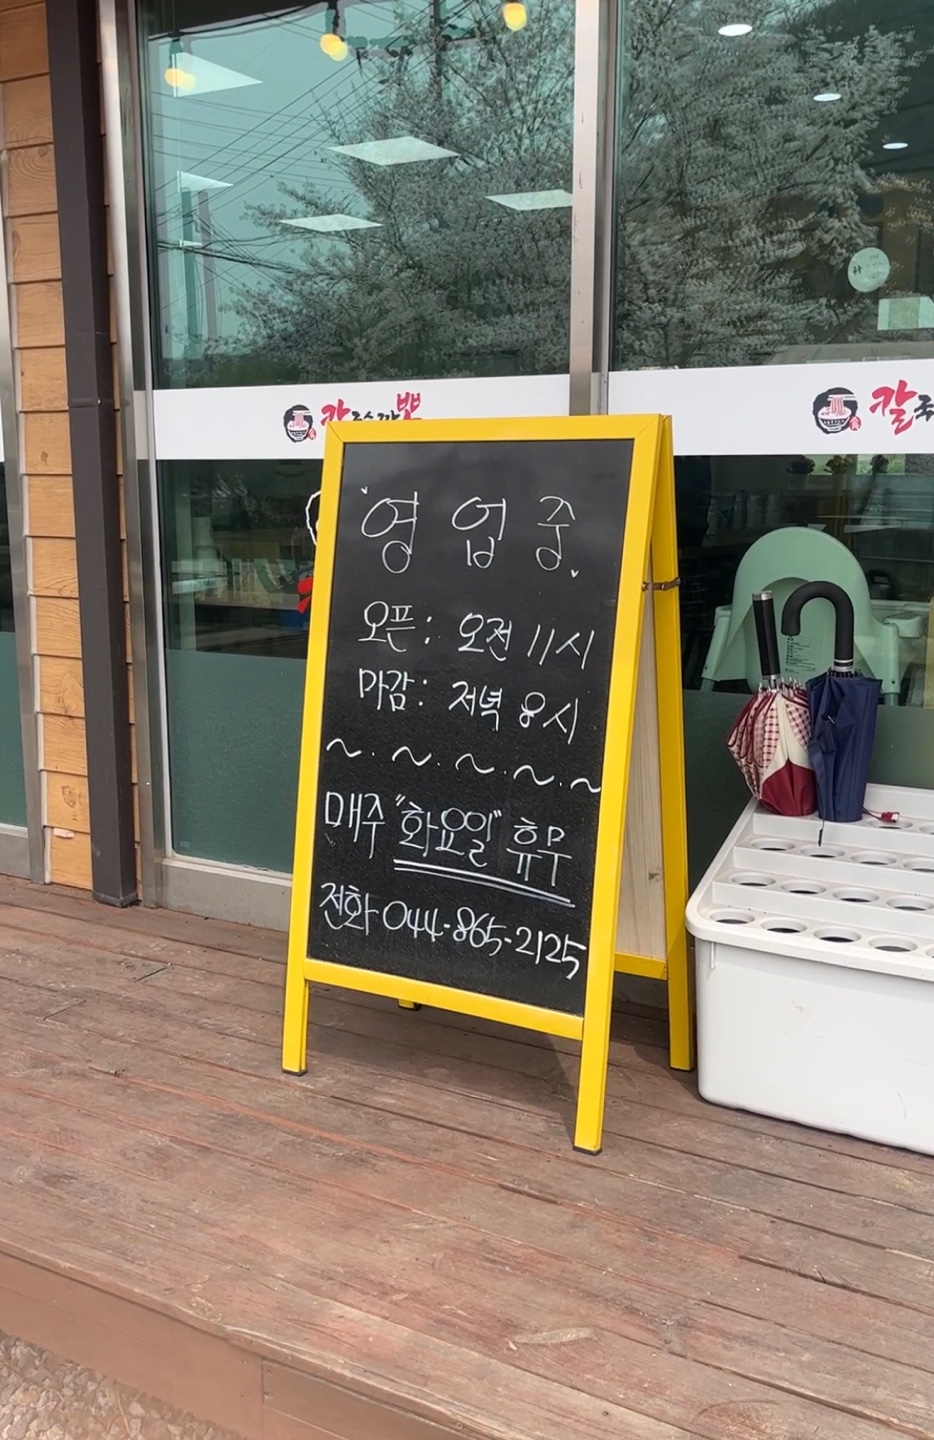 "영 업 중"
오픈: 오전 11시
마감: 저녁 8시
~. ~. ~. ~. ~
매주 "화요일" 휴무
전화 044-865-2125